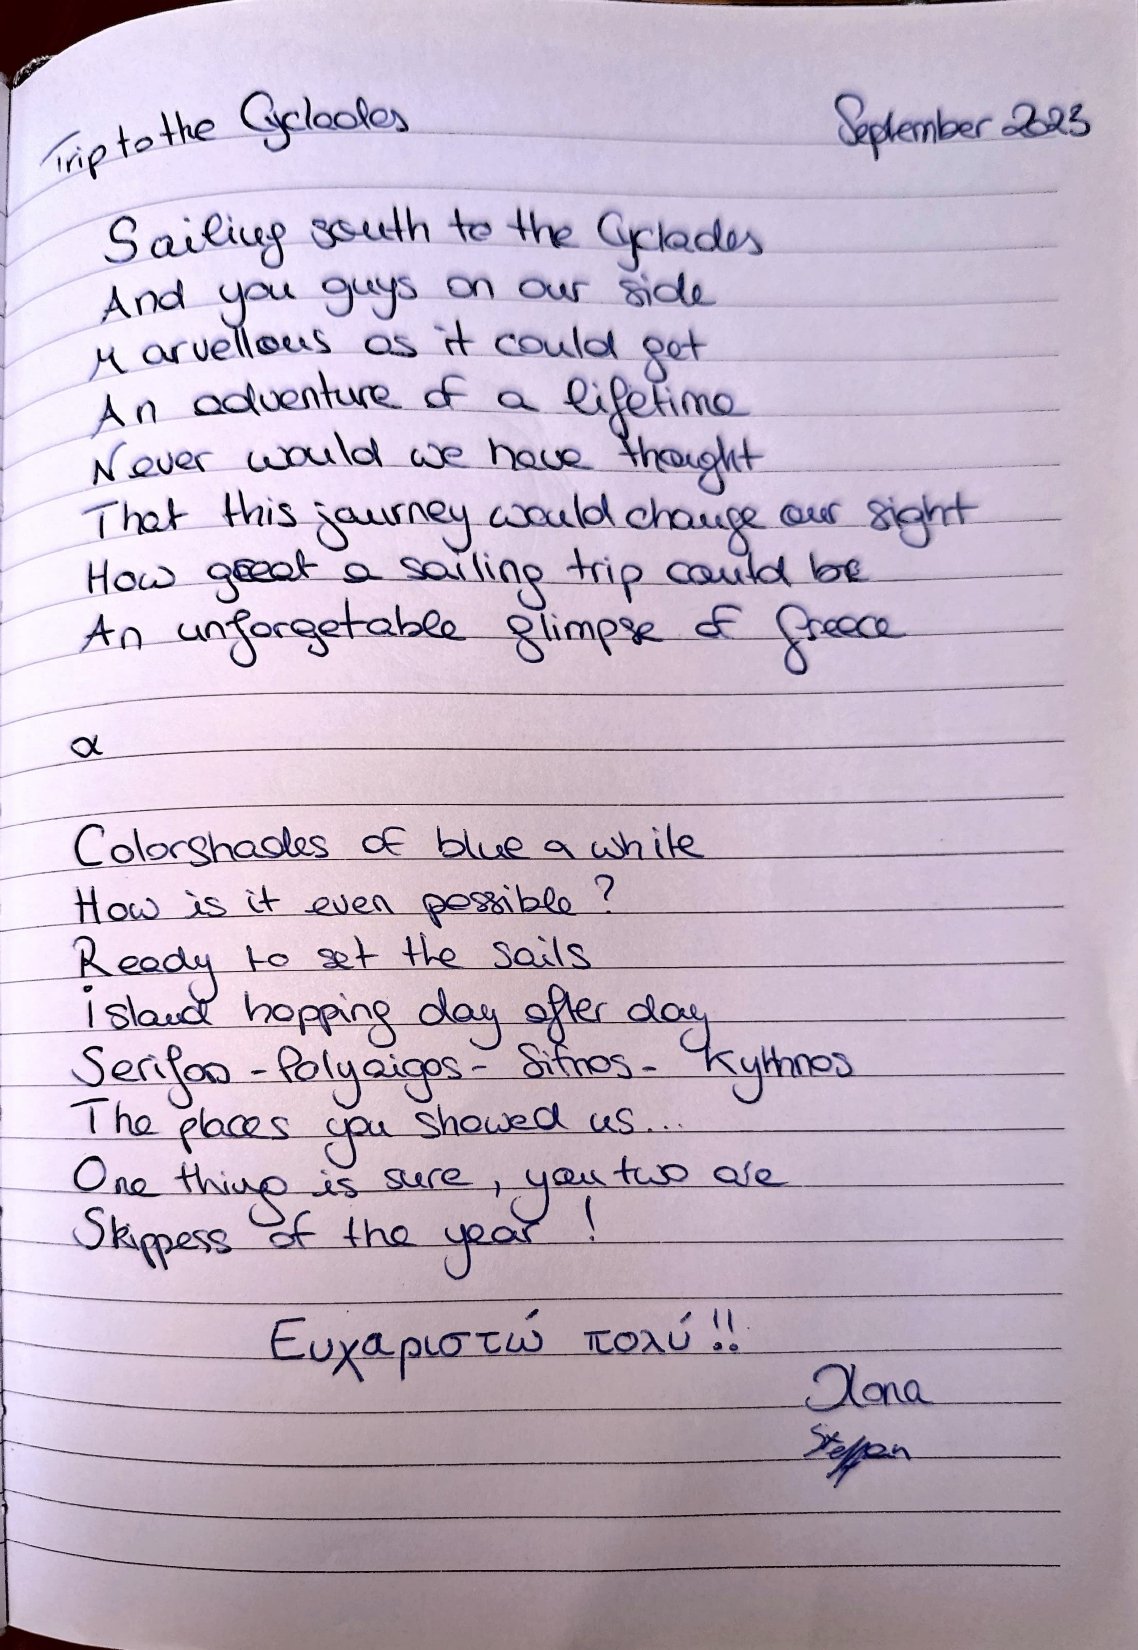 Trip to the Cyclades
September 2023
Sailing south to the Cyclades
And you guys on our side
Marvellous as it could get
An adventure of a lifetime
Never would we have thought
That this journey would change our sight
How great a sailing trip could be
An unforgetable glimpse of Greece
α
Colorshades of blue a white
How is it even possible?
Ready to set the sails
island hopping day after day
Serifos - Polyaigos - Sifnos - Kythnos
The places you showed us...
One thing is sure, you two are
Skippess of the year!
Ευχαριστώ πολύ!!
Ilona
Steffen